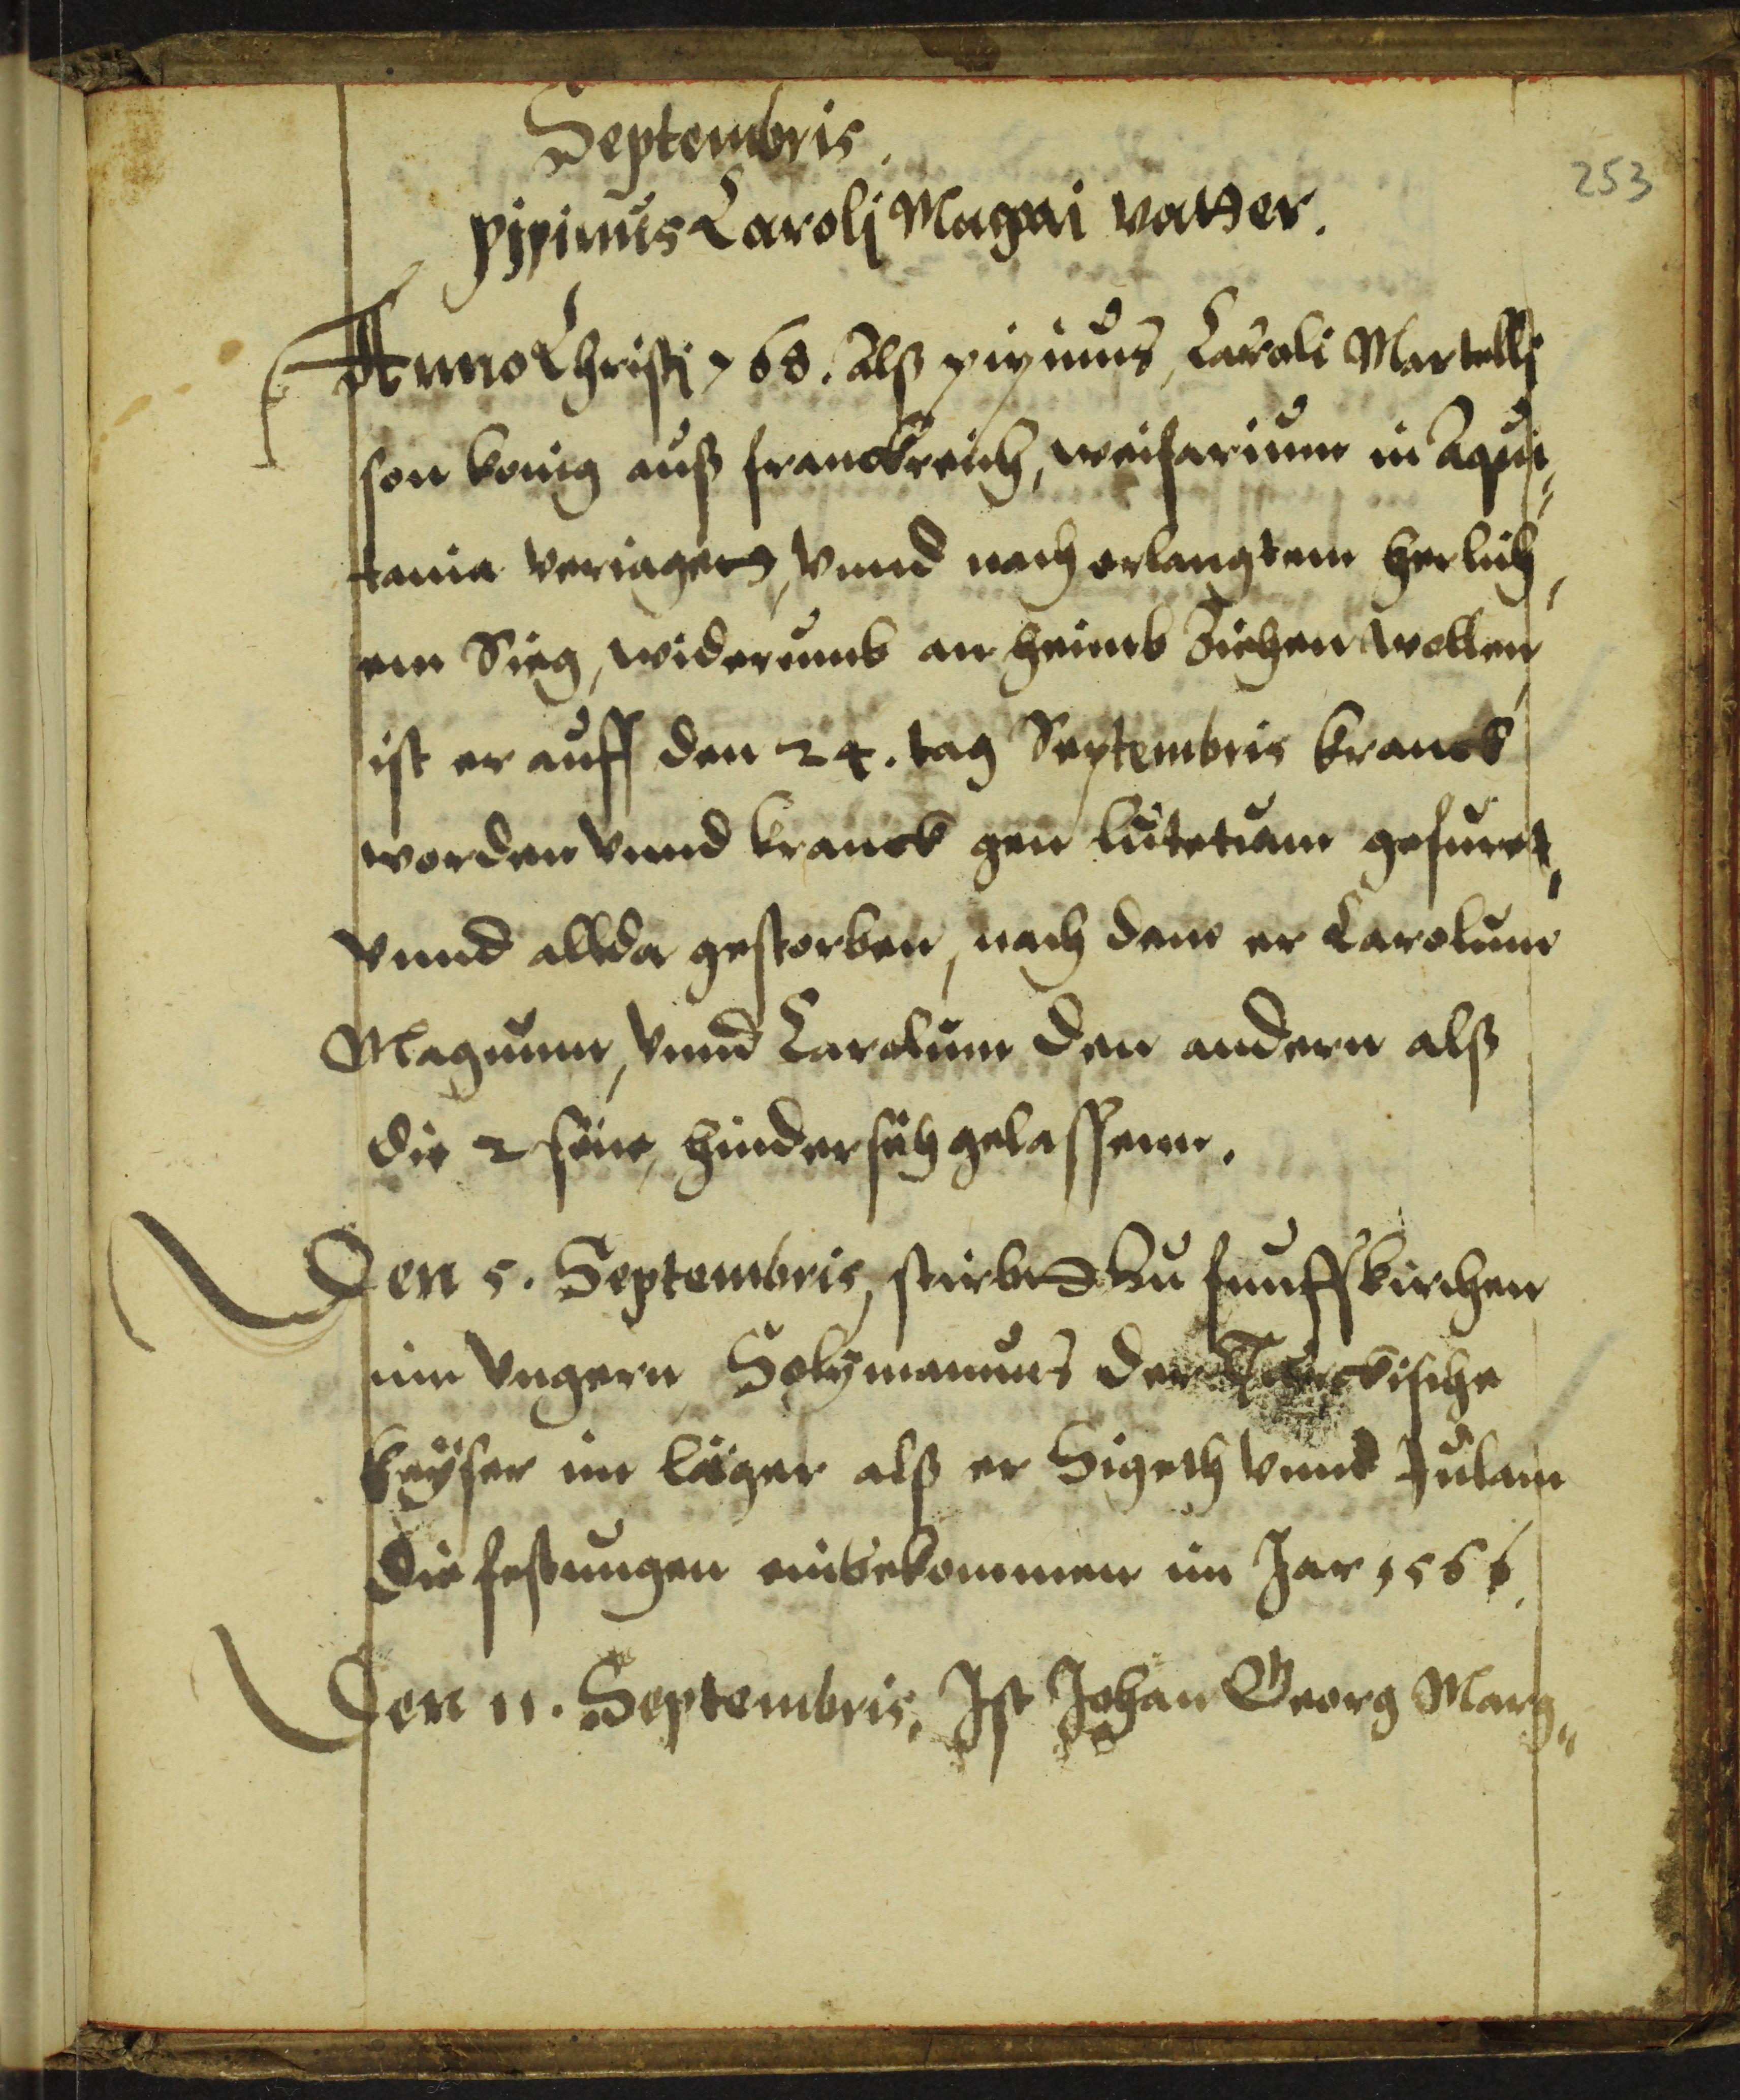 Septembris.
253
Pipinus Caroli Magni vatter.
Anno Christi 768. Alß Pipinus, Caroli Martelli
son konig auß franckreich, weifarium in Aqui„
tania veriaget, vnnd nach erlangtem herlich„
em Sieg, widerumb anheimb Ziehen wollen,
ist er auff den 24. tag Septembris kranck
worden vnnd kranck gen lutetiam gefuret,
vnnd allda gestorben, nach dem er Carolum
Magnum, vnnd Carolum den andern alß
die 2 söne, hinder sich gelassenn.
Den 5. Septembris, stirbt Zu funffkirchen
inn Vngern Solymannus der Türckische
keÿser im läger alß er Sigeth vnnd Julam
die festungen einbekommen im Jar 1566.
Den 11. Septembris, Ist Johan Georg Marg„